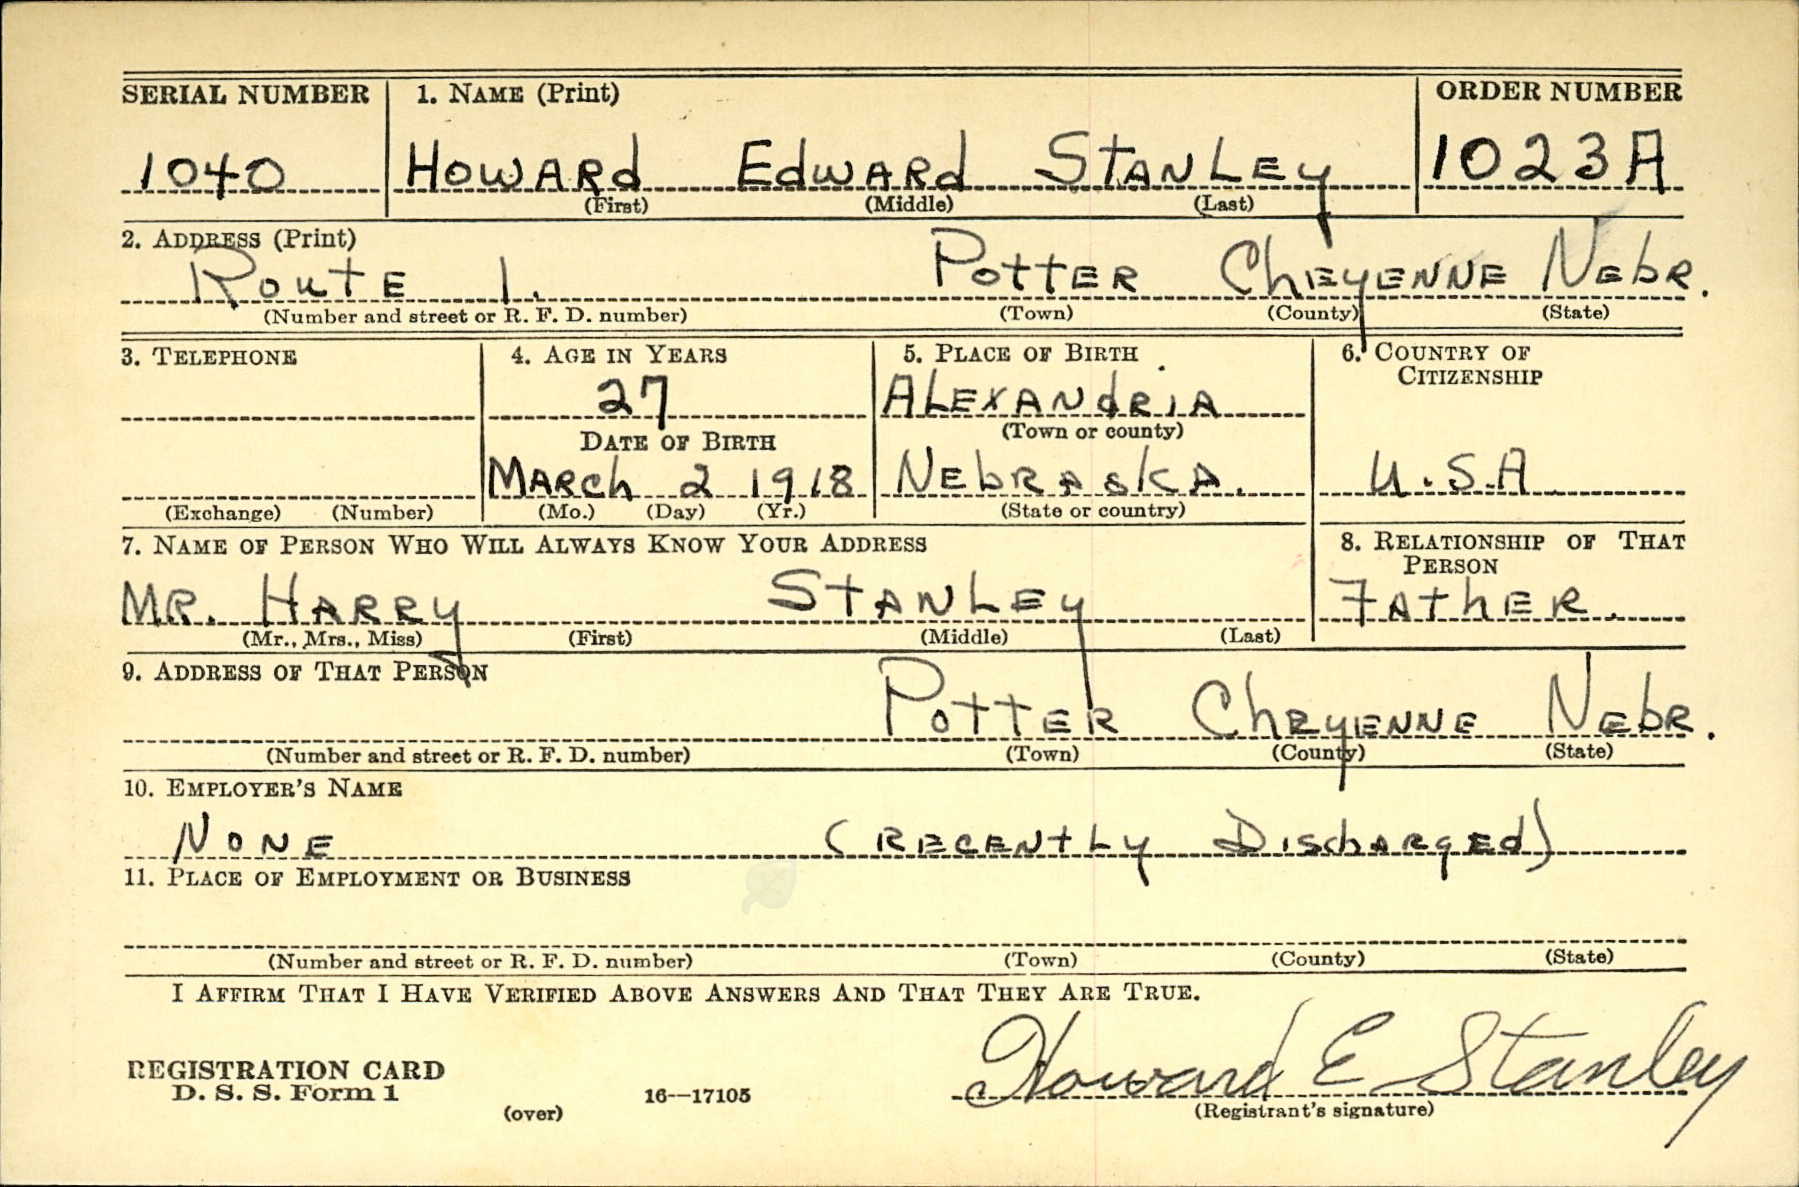 SERIAL NUMBER 1. NAME (Print) ORDER NUMBER
1040 HOWARd EdwARd STANLEy 1023A
(First) (Middle) (Last)
2. ADDRESS (Print)
RoutE 1. PottER ChEyENNE NEbR.
(Number and street or R. F. D. number) (Town) (County) (State)
3. TELEPHONE 4. AGE IN YEARS 5. PLACE OF BIRTH 6. COUNTRY OF CITIZENSHIP
27 ALEXANdRiA
DATE OF BIRTH (Town or county)
MARch 2 1918 NEbRAskA. U.S.A
(Exchange) (Number) (Mo.) (Day) (Yr.) (State or country)
7. NAME OF PERSON WHO WILL ALWAYS KNOW YOUR ADDRESS 8. RELATIONSHIP OF THAT PERSON
MR. HARRy STANLEy FAthER.
(Mr., Mrs., Miss) (First) (Middle) (Last)
9. ADDRESS OF THAT PERSON
PottER ChEyENNE NEbR.
(Number and street or R. F. D. number) (Town) (County) (State)
10. EMPLOYER'S NAME
NONE (RECENtLy DischARgEd)
11. PLACE OF EMPLOYMENT OR BUSINESS
(Number and street or R. F. D. number) (Town) (County) (State)
I AFFIRM THAT I HAVE VERIFIED ABOVE ANSWERS AND THAT THEY ARE TRUE.
Howard E Stanley
REGISTRATION CARD
D. S. S. Form 1 16—17105
(over) (Registrant's signature)